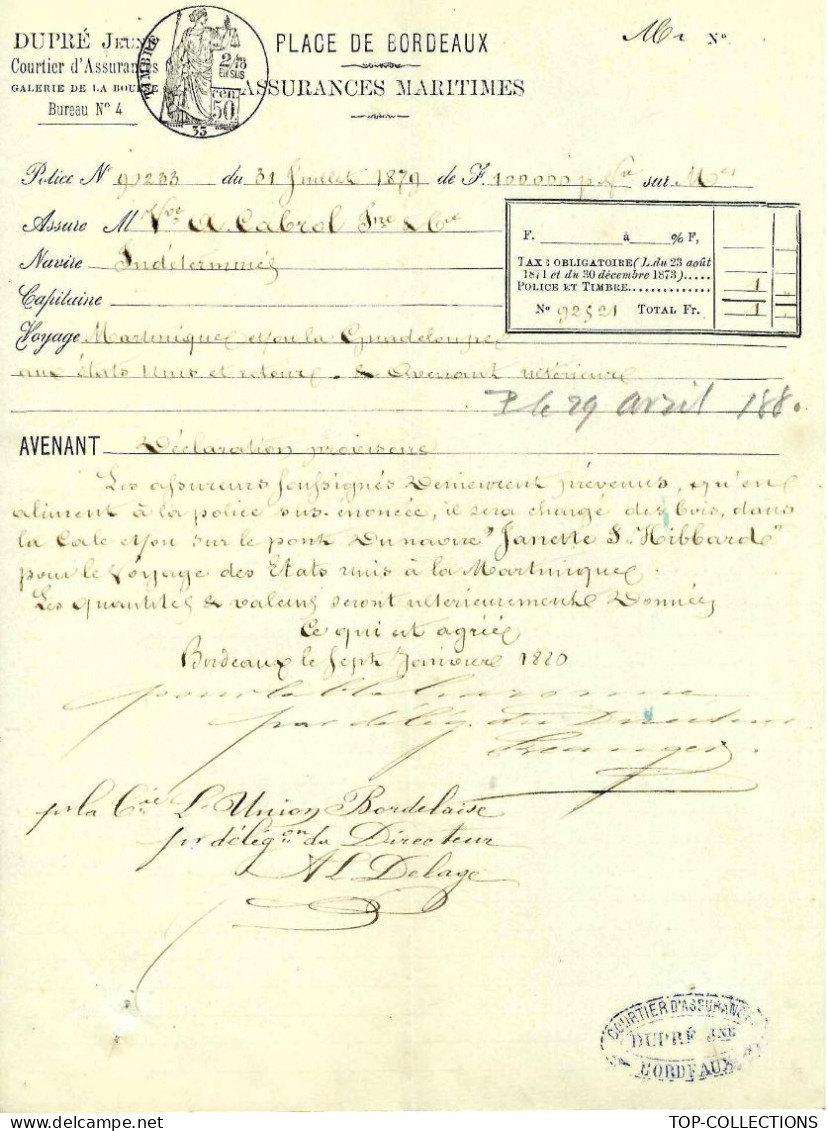 DUPRÉ JEUNE
Courtier d'Assurances
GALERIE DE LA BOURSE
Bureau N° 4
TIMBRE
2/10 EN SUS
CEN 50
33
PLACE DE BORDEAUX
ASSURANCES MARITIMES
N°
Police N° 92233 du 31 Juillet 1879 de F. 100000 p Nre sur Mses
Assuré M Vve A. Cabrol Jne & Cie
Navire Indéterminés
Capitaine
Voyage Martinique et/ou la Guadeloupe
aux états unis et retour. & avenant ultérieur
F. à % F,
TAXE OBLIGATOIRE (L. du 23 août
1871 et du 30 décembre 1873).....
POLICE ET TIMBRE............... 1
N° 92521 TOTAL Fr. 1
P le 29 avril 1880
AVENANT Déclaration provisoire
Les assureurs soussignés demeurent prévenus, qu'en
aliment à la police sus-énoncée, il sera chargé des bois, dans
la Cale et/ou sur le pont du navire "Janette S. Hibbard"
pour le voyage des Etats unis à la Martinique.
Les quantités & valeurs seront ultérieurement données
Ce qui est agréé
Bordeaux le sept Janvier 1880
pour la
par délég. du Directeur
p la Cie L'Union Bordelaise
pr délégon du Directeur
A L Delage
COURTIER D'ASSURANCES
DUPRÉ JNE
BORDEAUX
TOP-COLLECTIONS